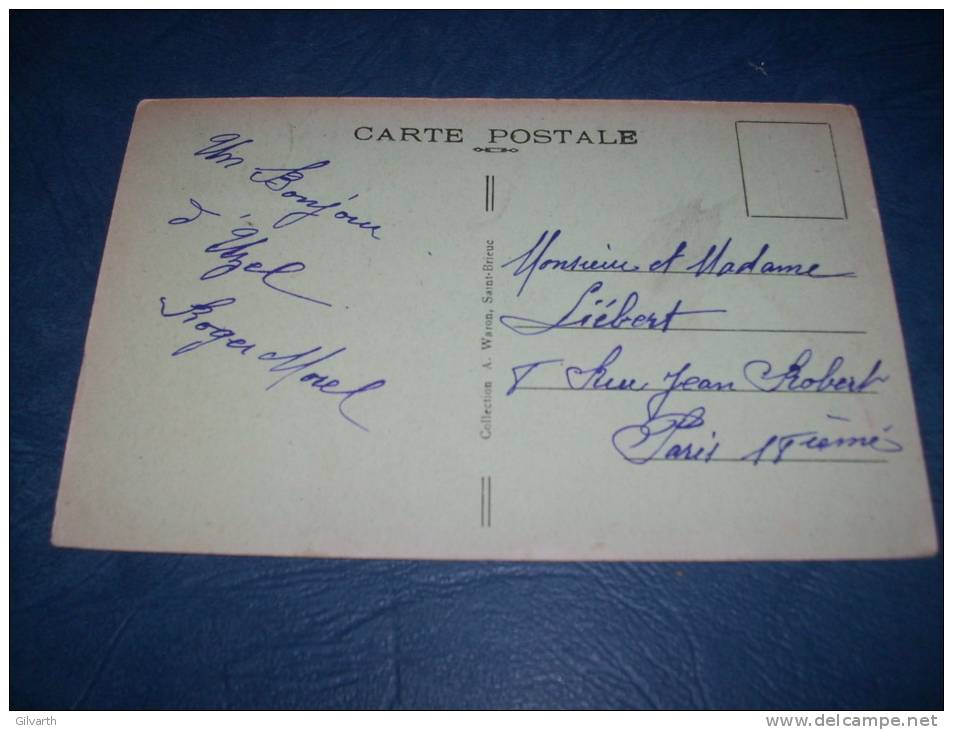 CARTE POSTALE
Un Bonjour
d'Uzel
Roger Morel
Collection A. Waron, Saint-Brieuc
Monsieur et Madame
Liébert
Rue Jean Robert
Paris
Gilvarth
www.delcampe.net